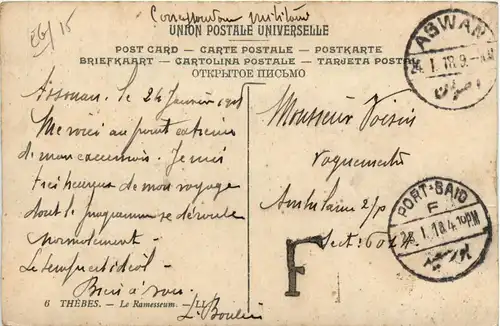 EG/15
Correspondance militaire
UNION POSTALE UNIVERSELLE
POST CARD – CARTE POSTALE – POSTKARTE
BRIEFKAART – CARTOLINA POSTALE – TARJETA POSTAL
ОТКРЫТОЕ ПИСЬМО
ASWAN
24. I. 18. 9.
اصوان
Assouan, le 24 Janvier
Me voici au point extrême
de mon excursion. Je suis
très heureux de mon voyage
dont le programme se déroule
normalement –
Le temps est idéal –
Bien à vous.
L. Boulin
Monsieur Voisin
Vaguemestre
Ambulance 2/
Sect:
PORT-SAID
F
I. 18. 4. 10 PM
بورسعيد
F
6 THÈBES. – Le Ramesseum. – LL